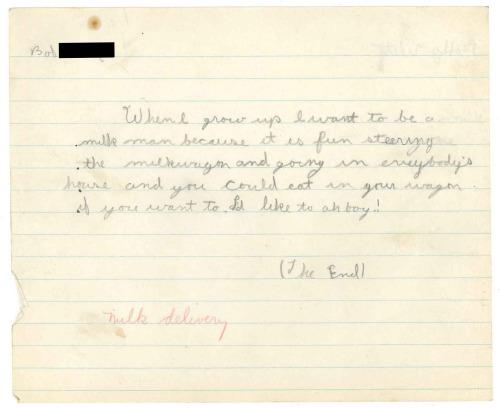 Bob
When I grow up I want to be a
milk man because it is fun steering
the milkwagon and going in everybody's
house and you could eat in your wagon
if you want to. I'd like to ah boy!!
(The End)
Milk delivery